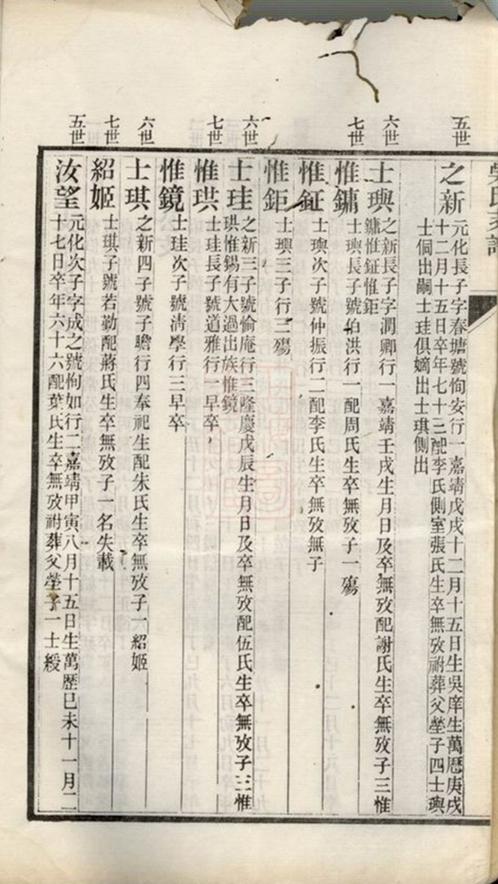 吳氏支譜
五世
之新
元化長子字春塘號恂安行一嘉靖戊戌十二月十五日生吳庠生萬厯庚戌
十二月十五日卒年七十三配李氏側室張氏生卒無攷祔葬父塋子四士璵
士侗出嗣士珪俱嫡出士琪側出
六世
士璵
之新長子字潤卿行一嘉靖壬戌生月日及卒無攷配謝氏生卒無攷子三惟
鏞惟鉦惟鉅
七世
惟鏞
士璵長子號伯洪行一配周氏生卒無攷子一殤
惟鉦
士璵次子號仲振行二配李氏生卒無攷無子
惟鉅
士璵三子行三殤
六世
士珪
之新三子號愉庵行三隆慶戊辰生月日及卒無攷配伍氏生卒無攷子三惟
珙惟錫有大過出族惟鏡
七世
惟珙
士珪長子號道雅行一早卒
惟鏡
士珪次子號清學行三早卒
六世
士琪
之新四子號子瞻行四奉祀生配朱氏生卒無攷子一紹姬
七世
紹姬
士琪子號若勤配蔣氏生卒無攷子一名失載
五世
汝望
元化次子字成之號恂如行二嘉靖甲寅八月十五日生萬歷己未十一月二
十七日卒年六十六配葉氏生卒無攷祔葬父塋子一士綬